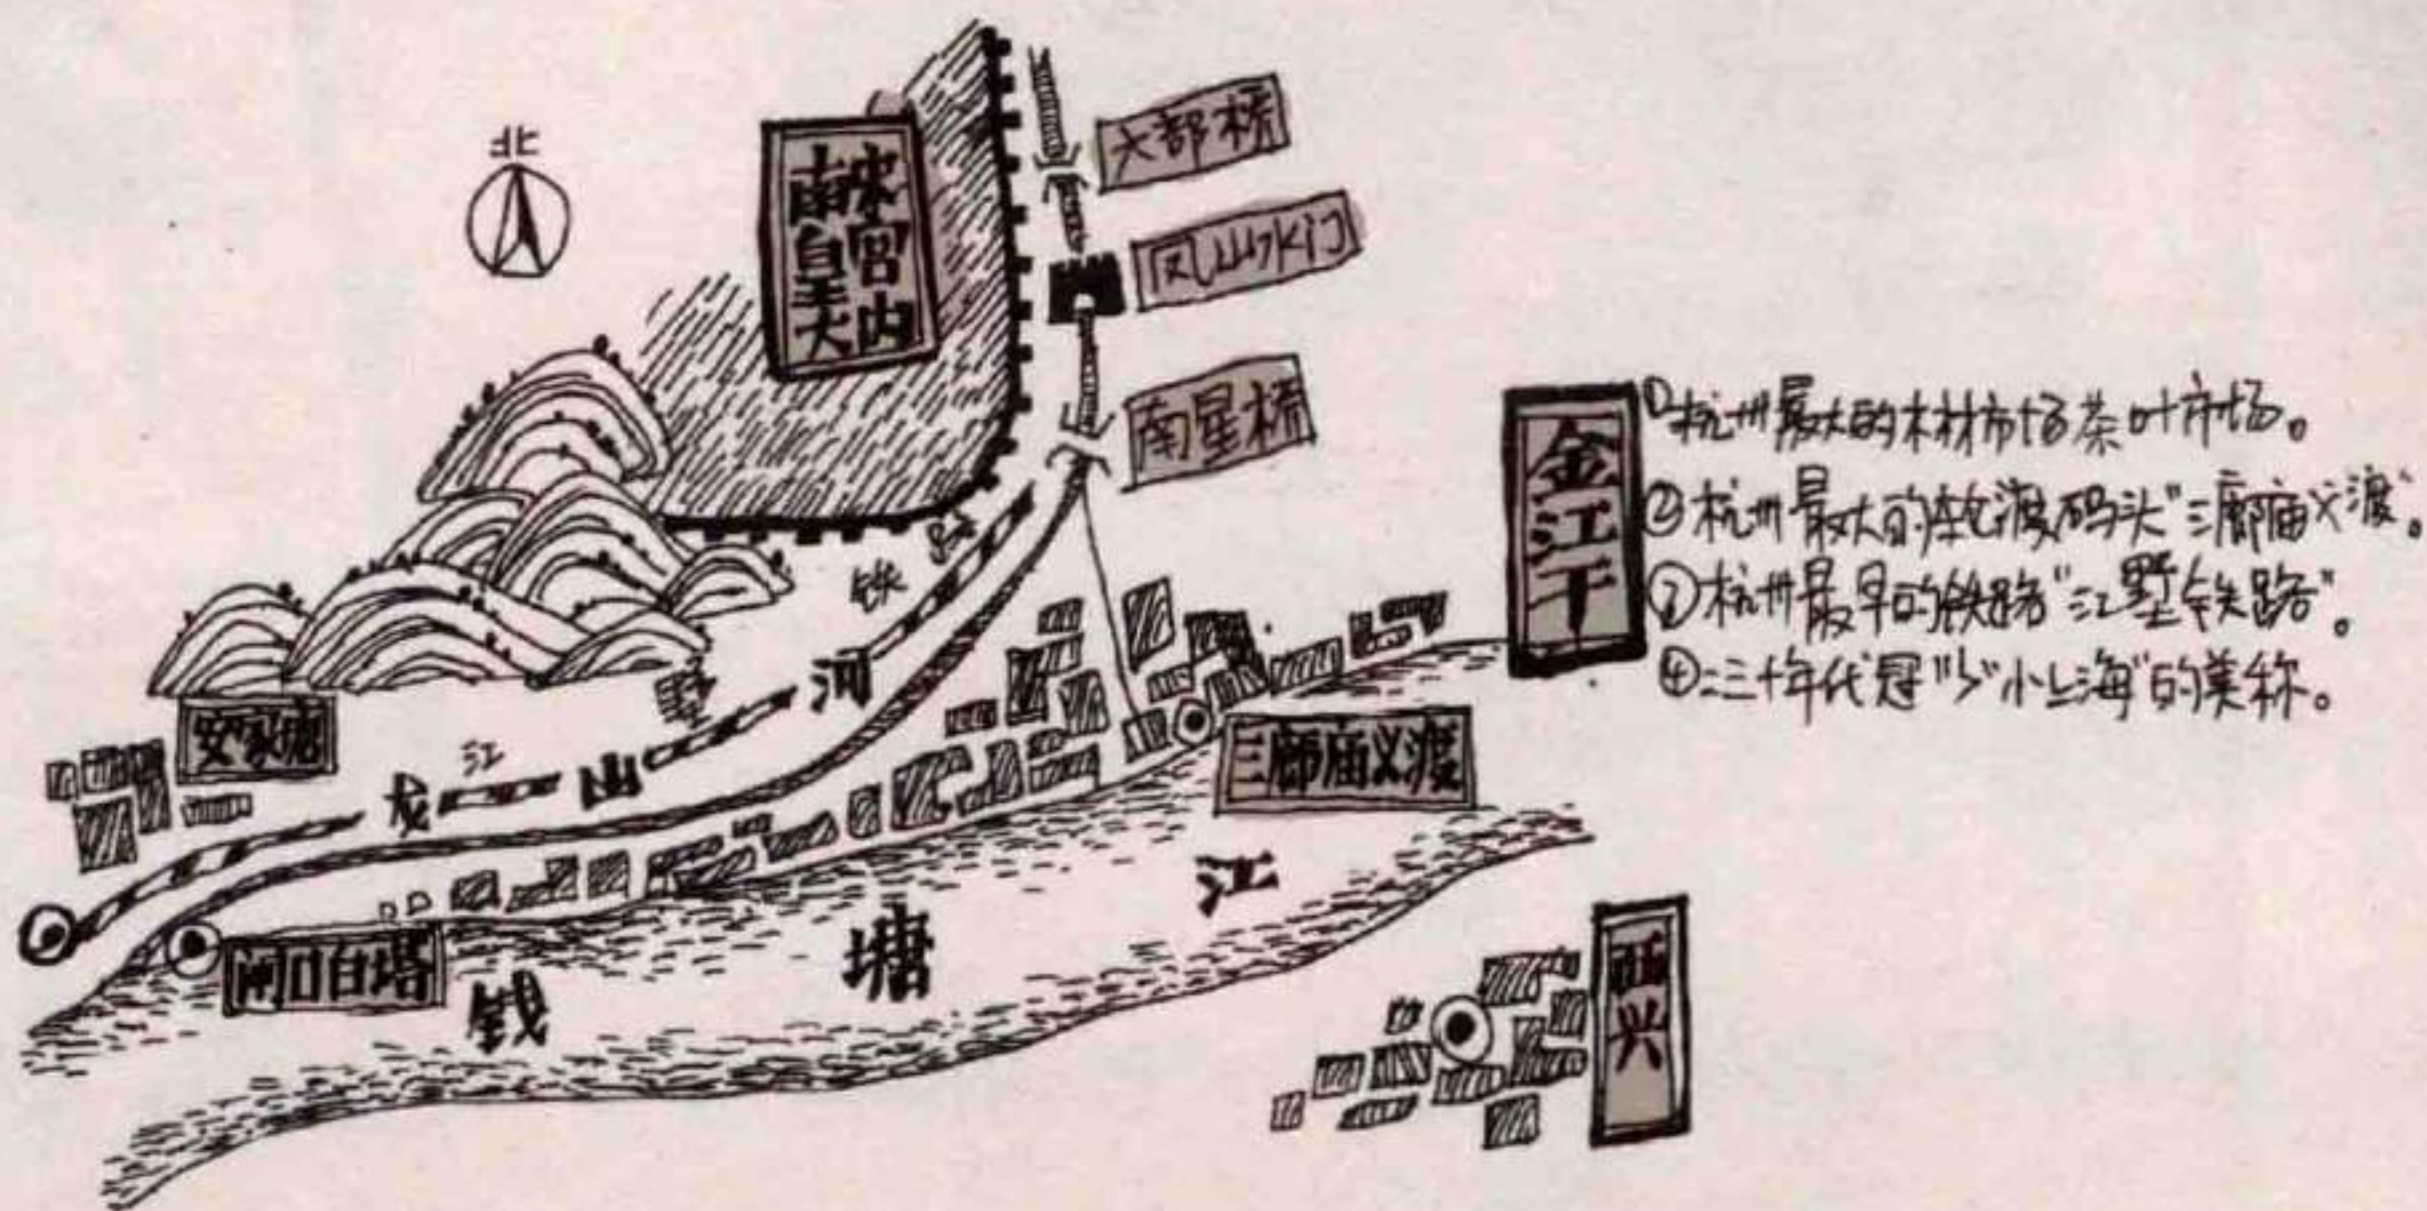 北
南宋
皇宫
大内
六部桥
凤山水门
南星桥
金江干
①杭州最大的木材市场茶叶市场。
②杭州最大的轮渡码头"三廊庙义渡"。
③杭州最早的铁路"江墅铁路"。
④二三十年代冠以"小上海"的美称。
江墅铁路
龙山河
安家塘
三廊庙义渡
闸口白塔
钱塘江
西兴